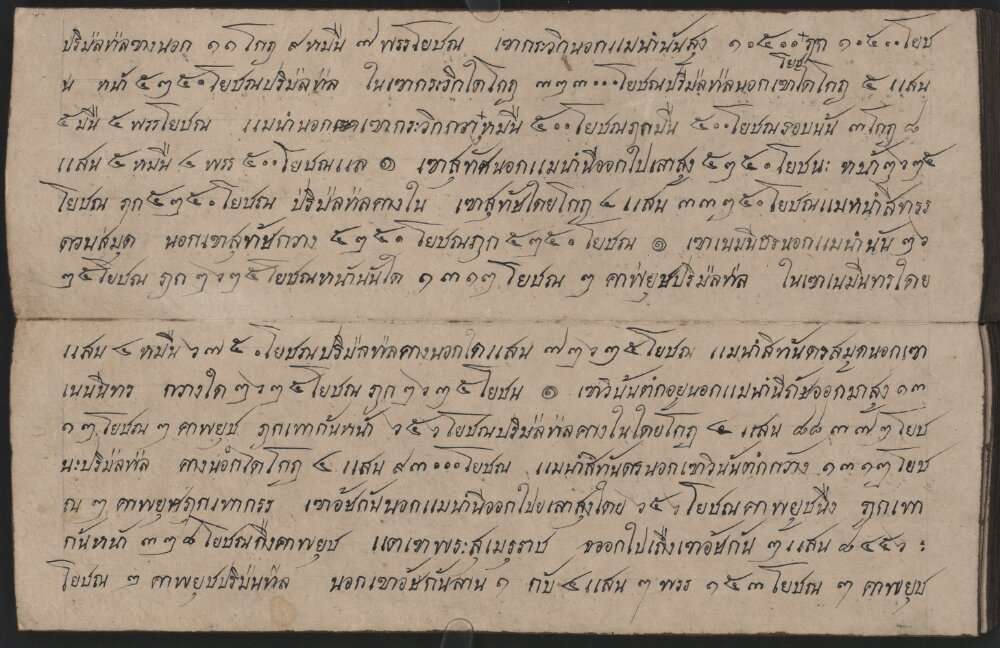 ปริมํลทํลฃางนอก ๑๐ โกฏ ๙ หมืน ๗ พรรโยชณ เฃากระวิกนอกแมน้ำนั้นสุง ๑๐๕๐๐ ฦก ๑๐๕๐๐ โยช
โยช
น หน้า ๕๒๕๐ โยชณปริมํลทํล ในเฃากระวิกใดโกฏ ๓๒๓๐๐๐ โยชณปริมํลทํลนอกเฃาใดโกฏ ๕ แสน
๕ มืน ๕ พรรโยชณ แมน้ำนอกเฃากระวิก หมืน ๕๐๐ โยชณฦกมืน ๕๐๐ โยชณรอบนั้น ๓ โกฏ ๘
แสน ๕ หมืน ๔ พรร ๕๐๐ โยชณแล ๑ เฃาสุทัศนอกแมน้ำนีออกไปเลาสุง ๕๒๕๐ โยชนะ หน้า ๒๖๒๕
โยชณ ฦก ๕๒๕๐ โยชณ ปริมํลทํลคางใน เฃาสุทัษใดยโกฏ ๔ แสน ๓๓๒๕๐ โยชณแมหน้ำสิทรร
ดวนสมุด นอกเฃาสุทัษกวาง ๕๒๕๐ โยชณฦก ๕๒๕๐ โยชณ ๑ เฃาเนมินธรนอกแมน้ำนั้น ๒๖
๒๕ โยชณ ฦก ๒๖๒๕ โยชณหน้านั้นใด ๑๓๑๒ โยชณ ๒ คาพยุชปริมํลทํล ในเฃาเนมินทรใดย
แสน ๔ หมืน ๖๗๕๐ โยชณปริมํลทํลคางนอกใดแสน ๗๒๖๒๕ โยชณ แมน้ำสิทันดรสมุดนอกเฃา
เนมินทร กวางใด ๒๖๒๕ โยชณ ฦก ๒๖๒๕ โยชน ๑ เฃาวินันตกอยูนอกแมน้ำนี ออกมาสุง ๑๓
๑๒ โยชณ ๒ คาพยุช ฦกเทากันหน้า ๖๕๖ โยชณปริมํลทํลคางในใดยโกฏ ๔ แสน ๘๘๓๗๒ โยช
นะปริมํลทํล คางนอกใดโกฏ ๔ แสน ๙๓๐๐๐ โยชณ แมน้ำสิทันดรนอกเฃาวินันตกกว้าง ๑๓๑๒ โยช
ณ ๒ คาพยุชฦกเทากรร เฃาอัษกันนอกแมน้ำนีออกไปยเลาสุงใดย ๖๕๖ โยชณคาพยุชนึง ฦกเทา
กันหน้า ๓๒๘ โยชณกึงคาพยุช แตเฃาพระสุเมรุราช จออกไปเถืงเฃาอัษกัน ๒ แสน ๘๔๕๖ ะ
โยชณ ๓ คาพยุชปริมํนทํล นอกเฃาอัษกันลาน ๑ กับ ๔ แสน ๒ พรร ๑๕๓ โยชณ ๓ คาพยุช